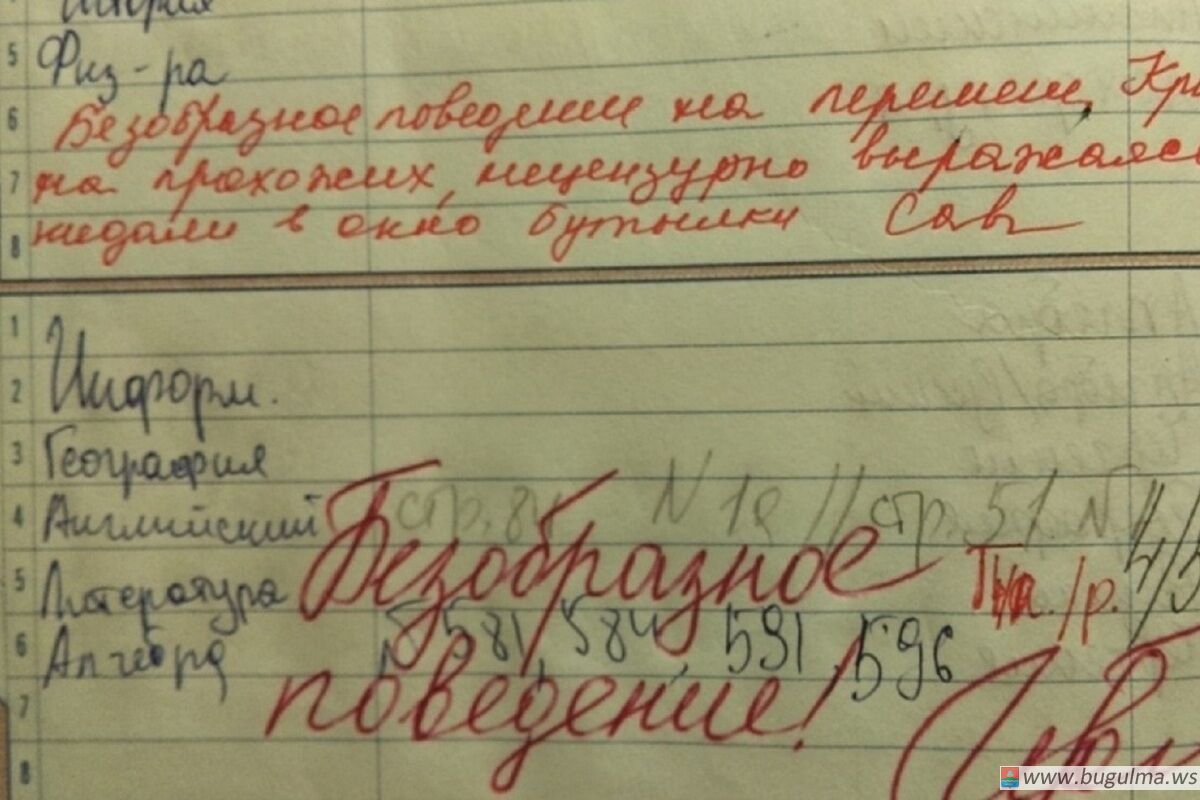 5 Физ-ра
6 Безобразное поведение на перемен,
7 на прохожих, нецензурно выражаясь
8 кидали в окно бутылки Сав
1
2 Информ.
3 География
4 Английский стр. 84 N 1а // стр. 51 N
5 Литература Безобразное
6 Алгебра N 581, 584, 591, 596
7 поведение!
8
www.bugulma.ws